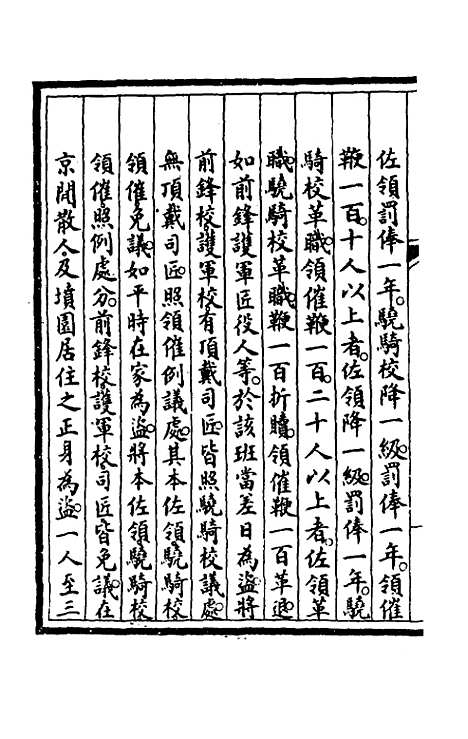 佐領罰俸一年。驍騎校降一級罰俸一年。領催
鞭一百。十人以上者。佐領降一級罰俸一年。驍
騎校革職。領催鞭一百。二十人以上者。佐領革
職。驍騎校革職鞭一百折贖。領催鞭一百革退。
如前鋒護軍匠役人等。於該班當差日為盜。將
前鋒校護軍校有頂戴司匠。皆照驍騎校議處。
無頂戴司匠。照領催例議處。其本佐領驍騎校
領催免議。如平時在家為盜。將本佐領驍騎校
領催。照例處分。前鋒校護軍校司匠皆免議。在
京閒散人及墳園居住之正身為盜。一人至三